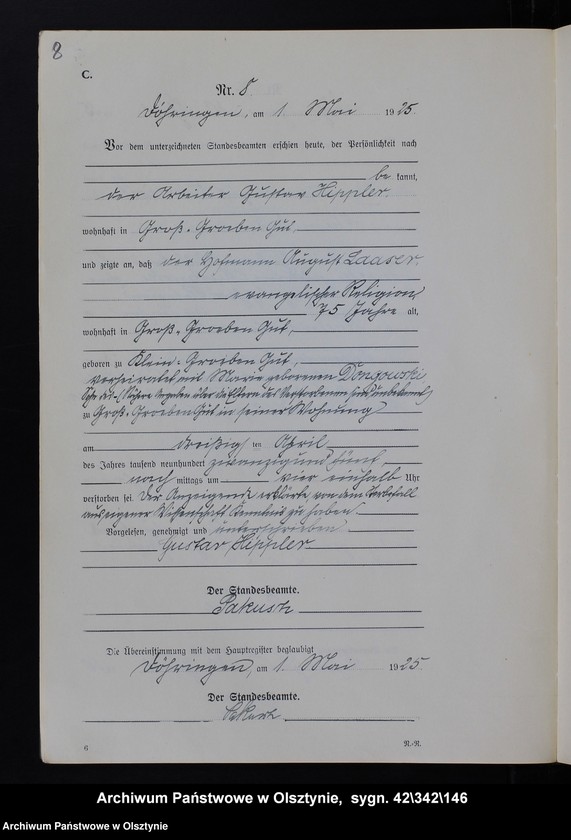 8
C.
Nr. 8
Döhringen, am 1. Mai 1925.
Vor dem unterzeichneten Standesbeamten erschien heute, der Persönlichkeit nach
be kannt,
der Arbeiter Gustav Hippler
wohnhaft in Groß-Groeben Gut,
und zeigte an, daß der Hofmann August Laaser
evangelischer Religion
75 Jahre alt,
wohnhaft in Groß-Groeben Gut,
geboren zu Klein-Groeben Gut,
verheiratet mit Marie geborenen Dongowski
Nähere Angaben über die Eltern des Verstorbenen sind unbekannt
zu Groß-Groeben Gut in seiner Wohnung
am dreißig ten April
des Jahres tausend neunhundert zwanzig und fünf
nach mittags um vier einhalb Uhr
verstorben sei. Der Anzeigende erklärte von dem Sterbefall
aus eigener Wissenschaft Kenntnis zu haben.
Vorgelesen, genehmigt und unterschrieben
Gustav Hippler
Der Standesbeamte.
Die Übereinstimmung mit dem Hauptregister beglaubigt
Döhringen, am 1. Mai 1925.
Der Standesbeamte.
6 R.-R.
Archiwum Państwowe w Olsztynie, sygn. 42\342\146
Archiwum Państwowe w Olsztynie